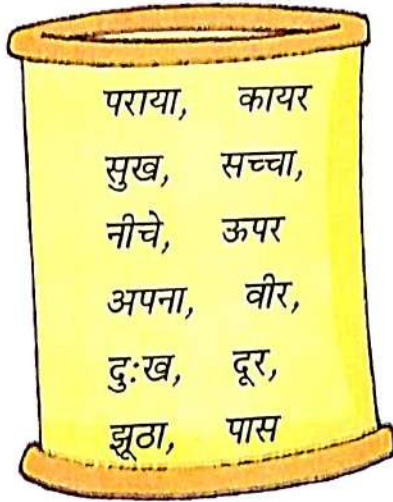 पराया, कायर
सुख, सच्चा,
नीचे, ऊपर
अपना, वीर,
दुःख, दूर,
झूठा, पास